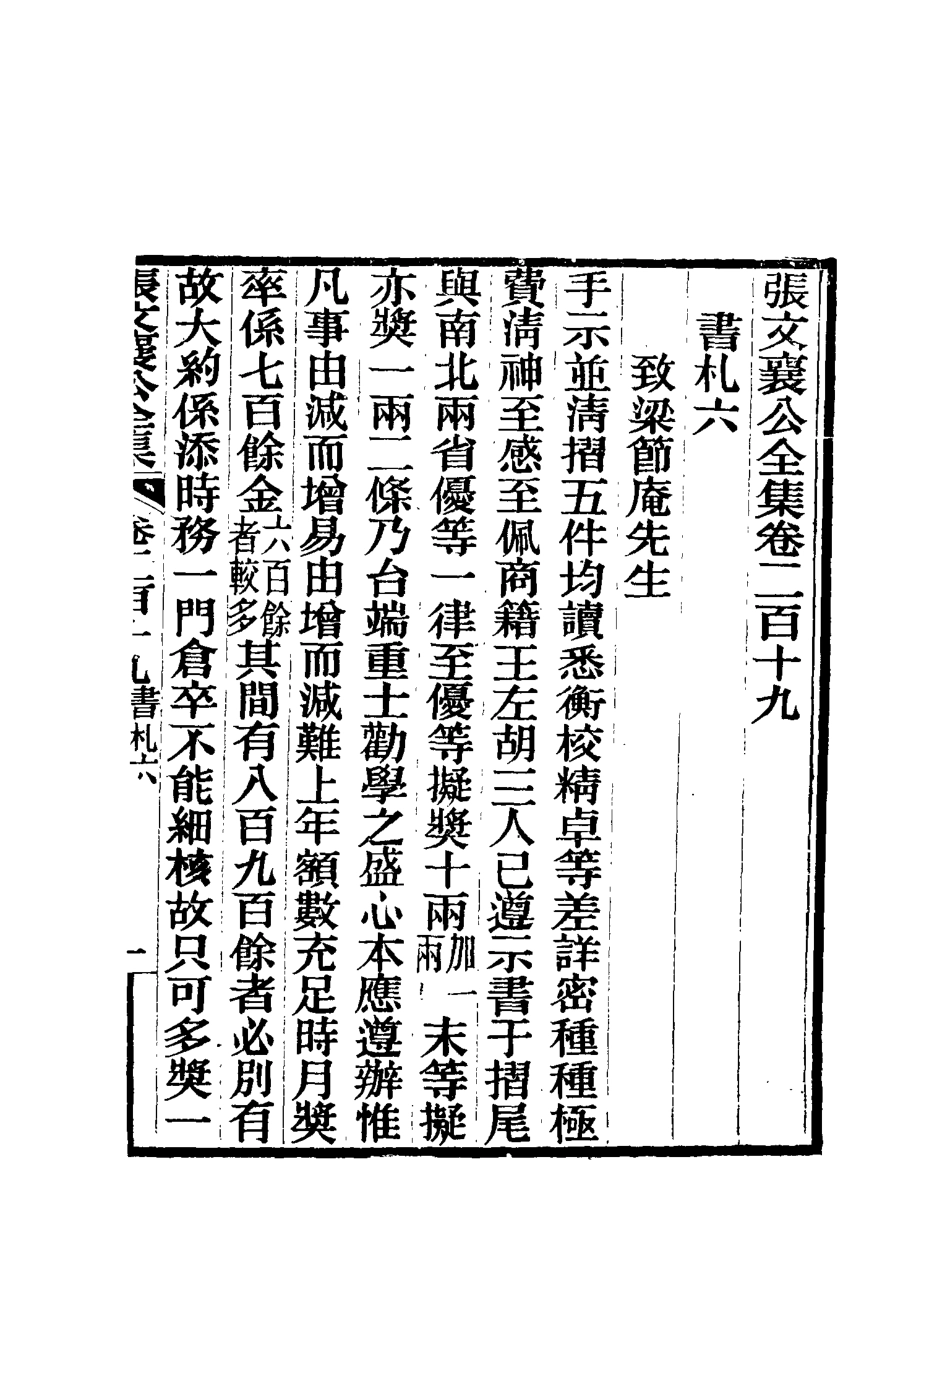 張文襄公全集卷二百十九
書札六
致梁節庵先生
手示並清摺五件均讀悉衡校精卓等差詳密種種極
費清神至感至佩商籍王左胡三人已遵示書于摺尾
與南北兩省優等一律至優等擬獎十兩加一兩末等擬
亦獎一兩二條乃台端重士勸學之盛心本應遵辦惟
凡事由減而增易由增而減難上年額數充足時月獎
率係七百餘金六百餘者較多其間有八百九百餘者必別有
故大約係添時務一門倉卒不能細核故只可多獎一
張文襄公全集 卷二百十九 書札六 一